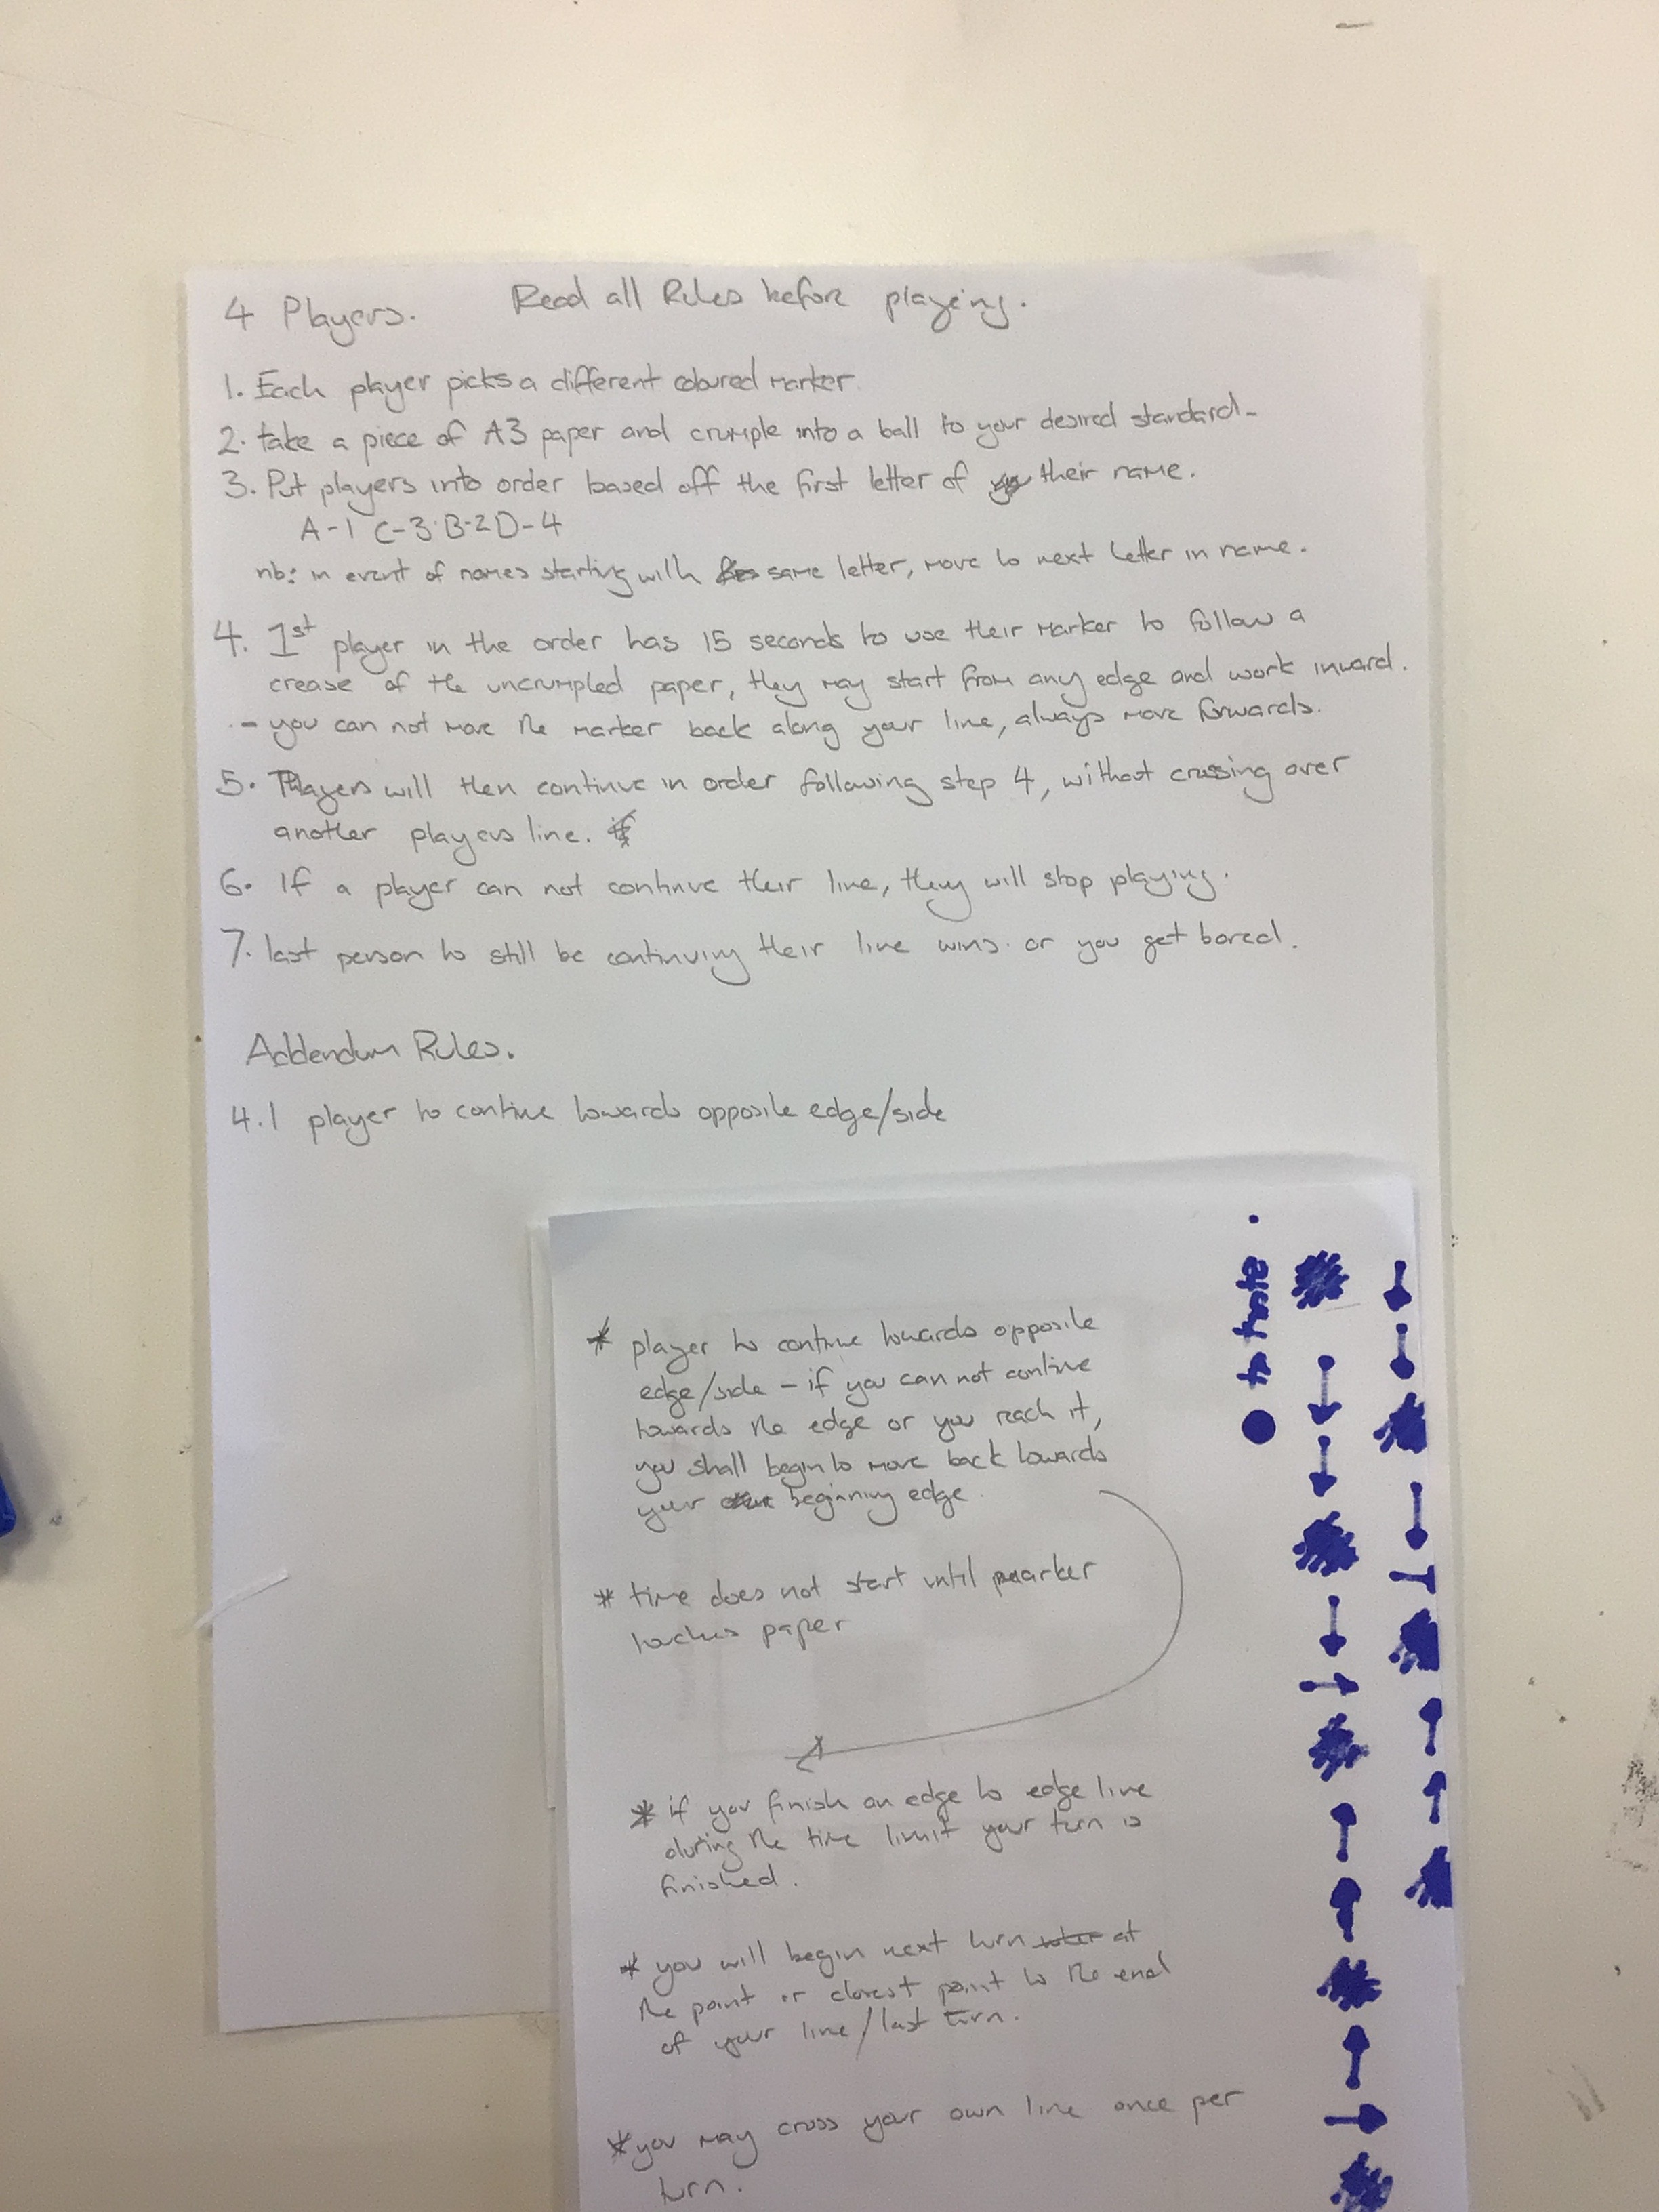 4 Players. Read all Rules before playing.
1. Each player picks a different coloured marker.
2. take a piece of A3 paper and crumple into a ball to your desired standard-
3. Put players into order based off the first letter of their name.
A-1 C-3 B-2 D-4
nb: in event of names starting with same letter, move to next letter in name.
4. 1st player in the order has 15 seconds to use their marker to follow a
crease of the uncrumpled paper, they may start from any edge and work inward.
- you can not move the marker back along your line, always move forwards.
5. Players will then continue in order following step 4, without crossing over
another players line.
6. If a player can not continue their line, they will stop playing.
7. last person to still be continuing their line wins. or you get bored.
Addendum Rules.
4.1 player to contine towards opposite edge/side
* player to contine towards opposite
edge/side - if you can not contine
towards the edge or you reach it,
you shall begin to move back towards
your beginning edge.
* time does not start until marker
touches paper
* if you finish an edge to edge line
during the time limit your turn is
finished.
* you will begin next turn at
the point or closest point to the end
of your line/last turn.
* you may cross your own line once per
turn.